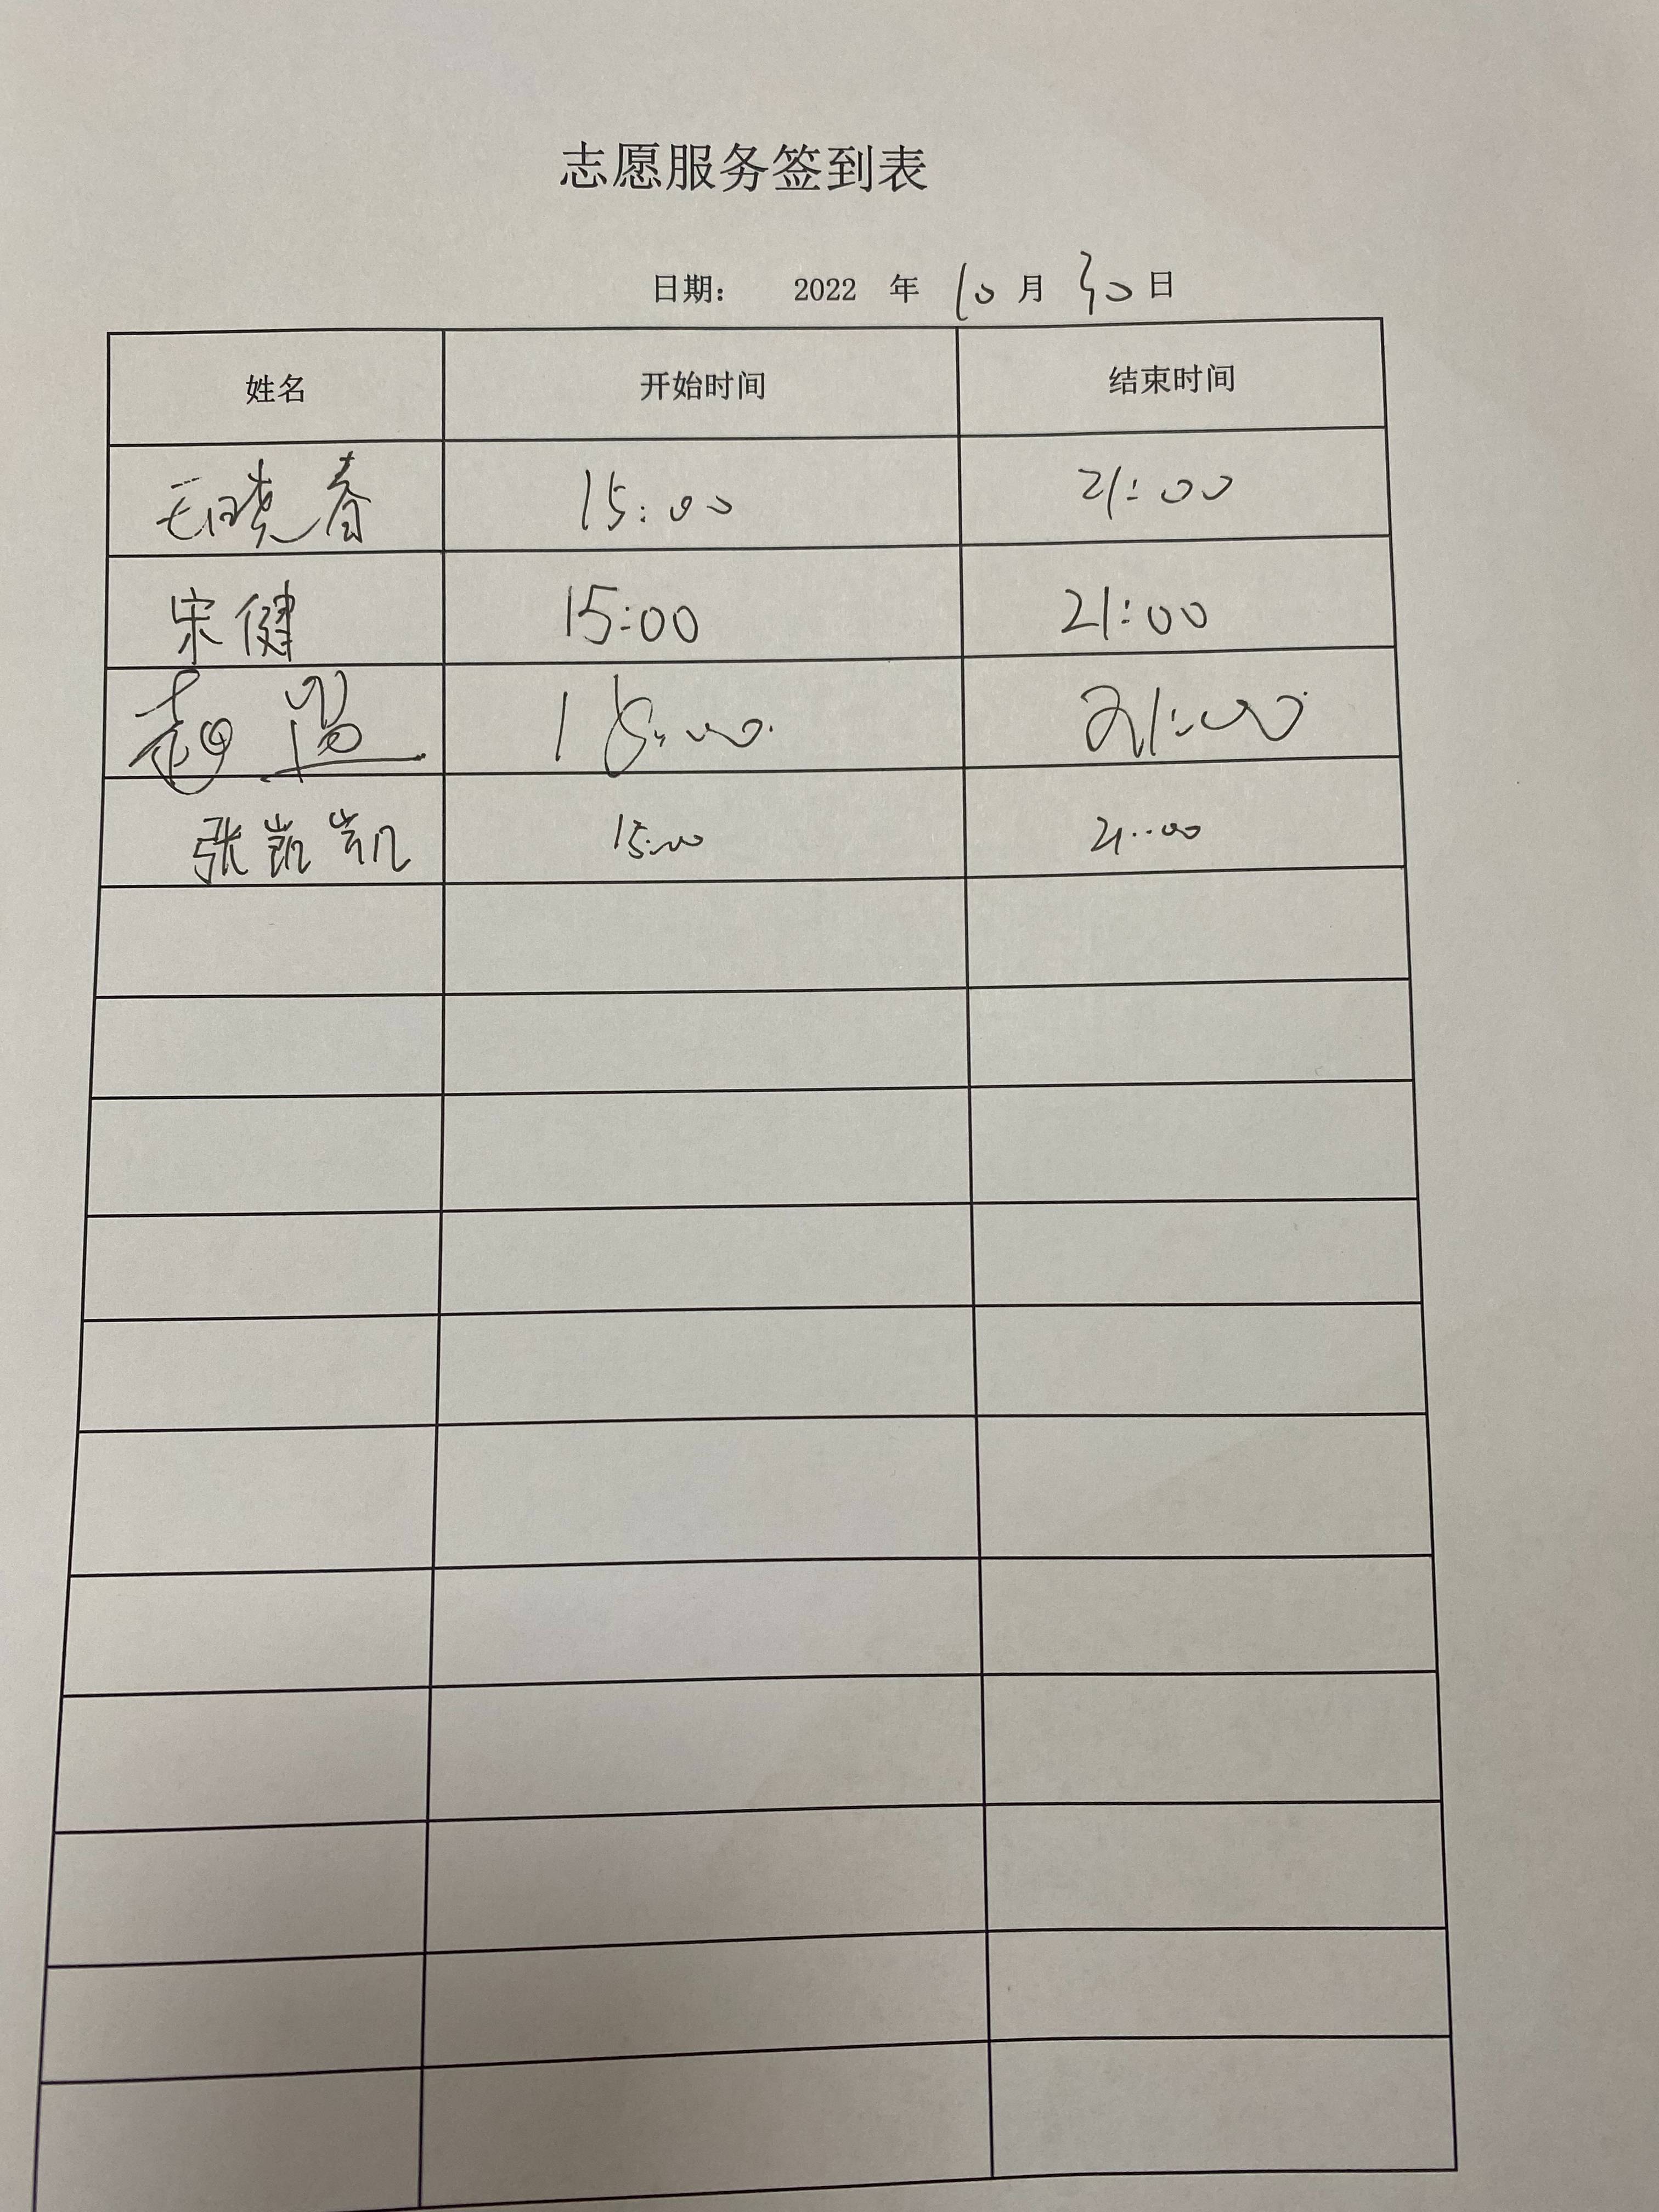 志愿服务签到表
日期： 2022 年 10 月 30 日
姓名 开始时间 结束时间
王晓春 15:00 21:00
宋健 15:00 21:00
15:00 21:00
张凯凯 15:00 21:00